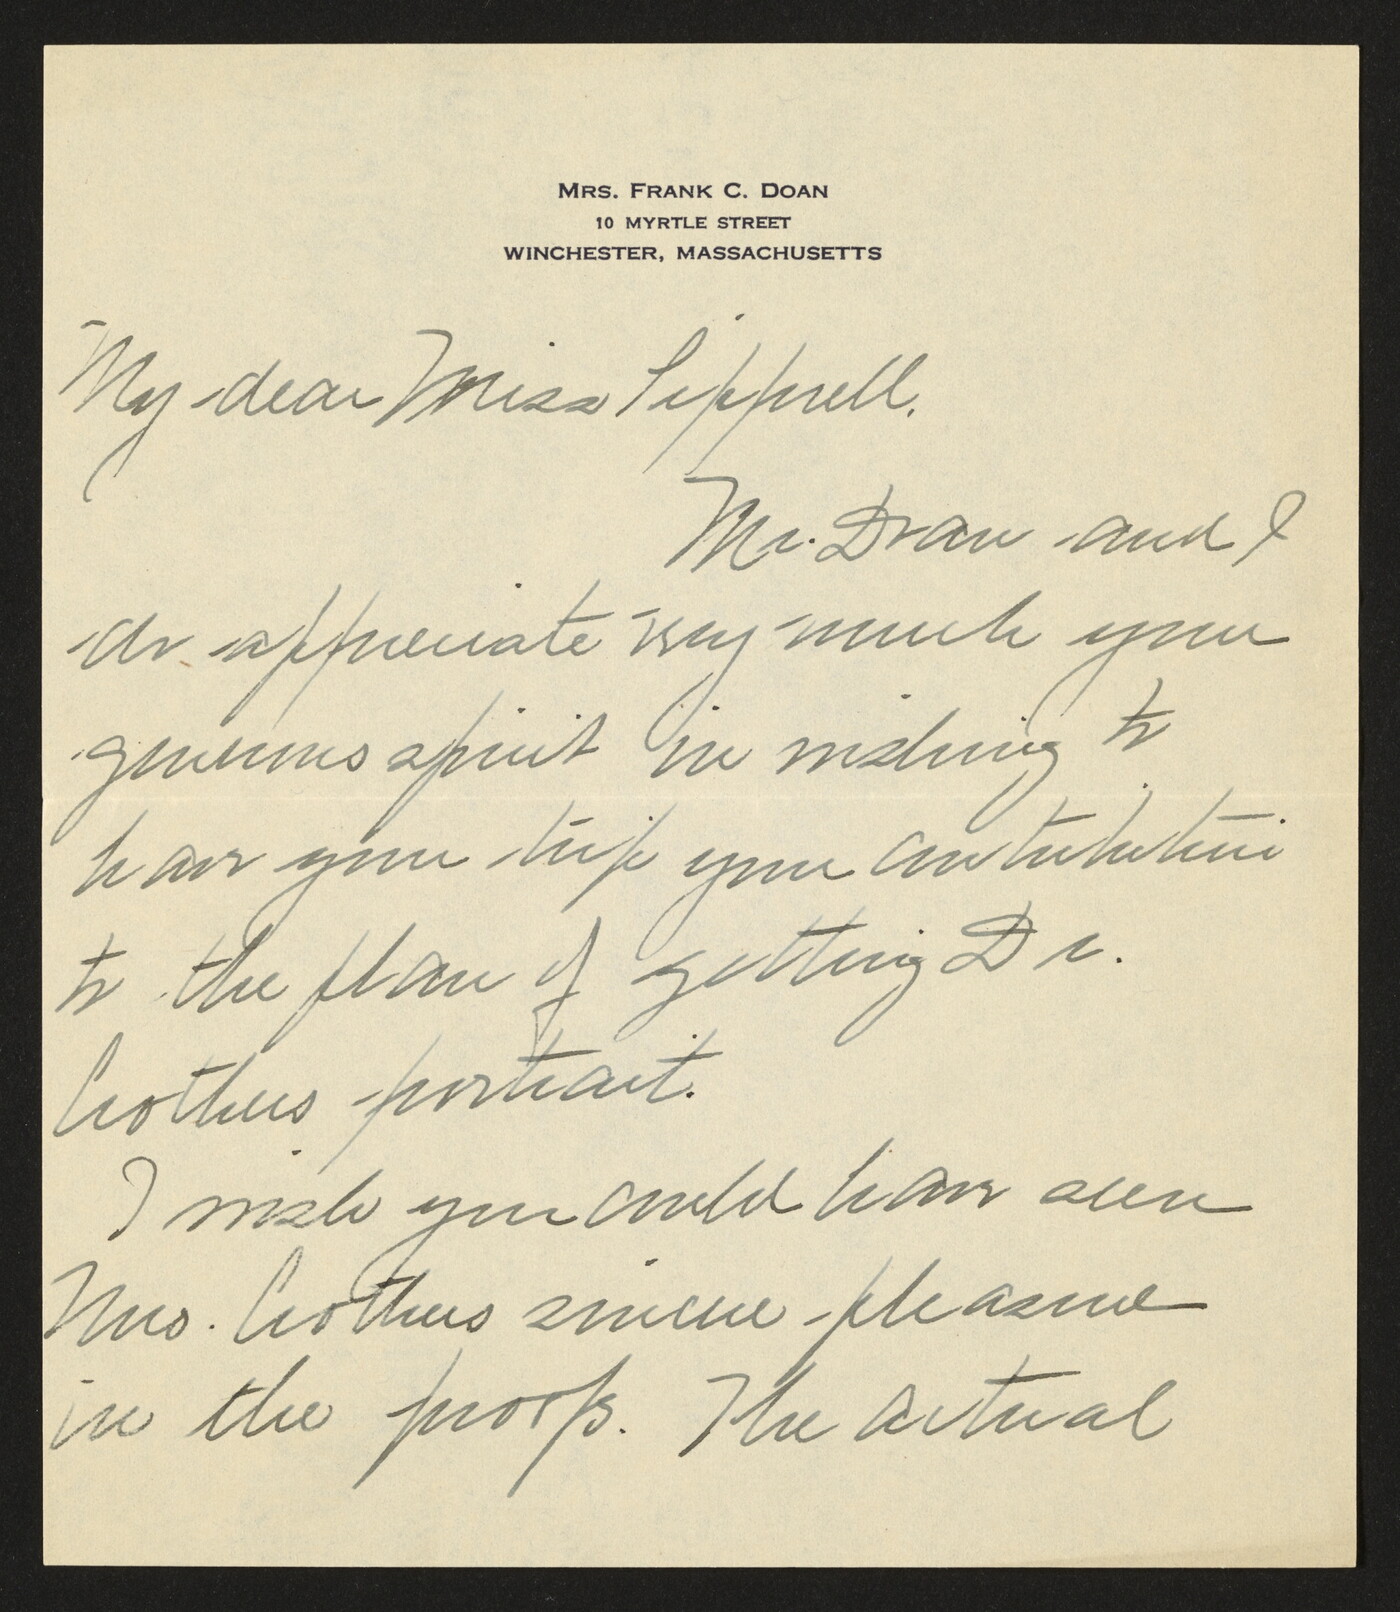 MRS. FRANK C. DOAN
10 MYRTLE STREET
WINCHESTER, MASSACHUSETTS
My dear Miss Sipprell.
Mr. Doan and I
do appreciate very much your
generous spirit in wishing to
have your trip your contribution
to the plan of getting Dr.
Crothers portrait.
I wish you could have seen
Mrs. Crothers sincere pleasure
in the proofs. The actual